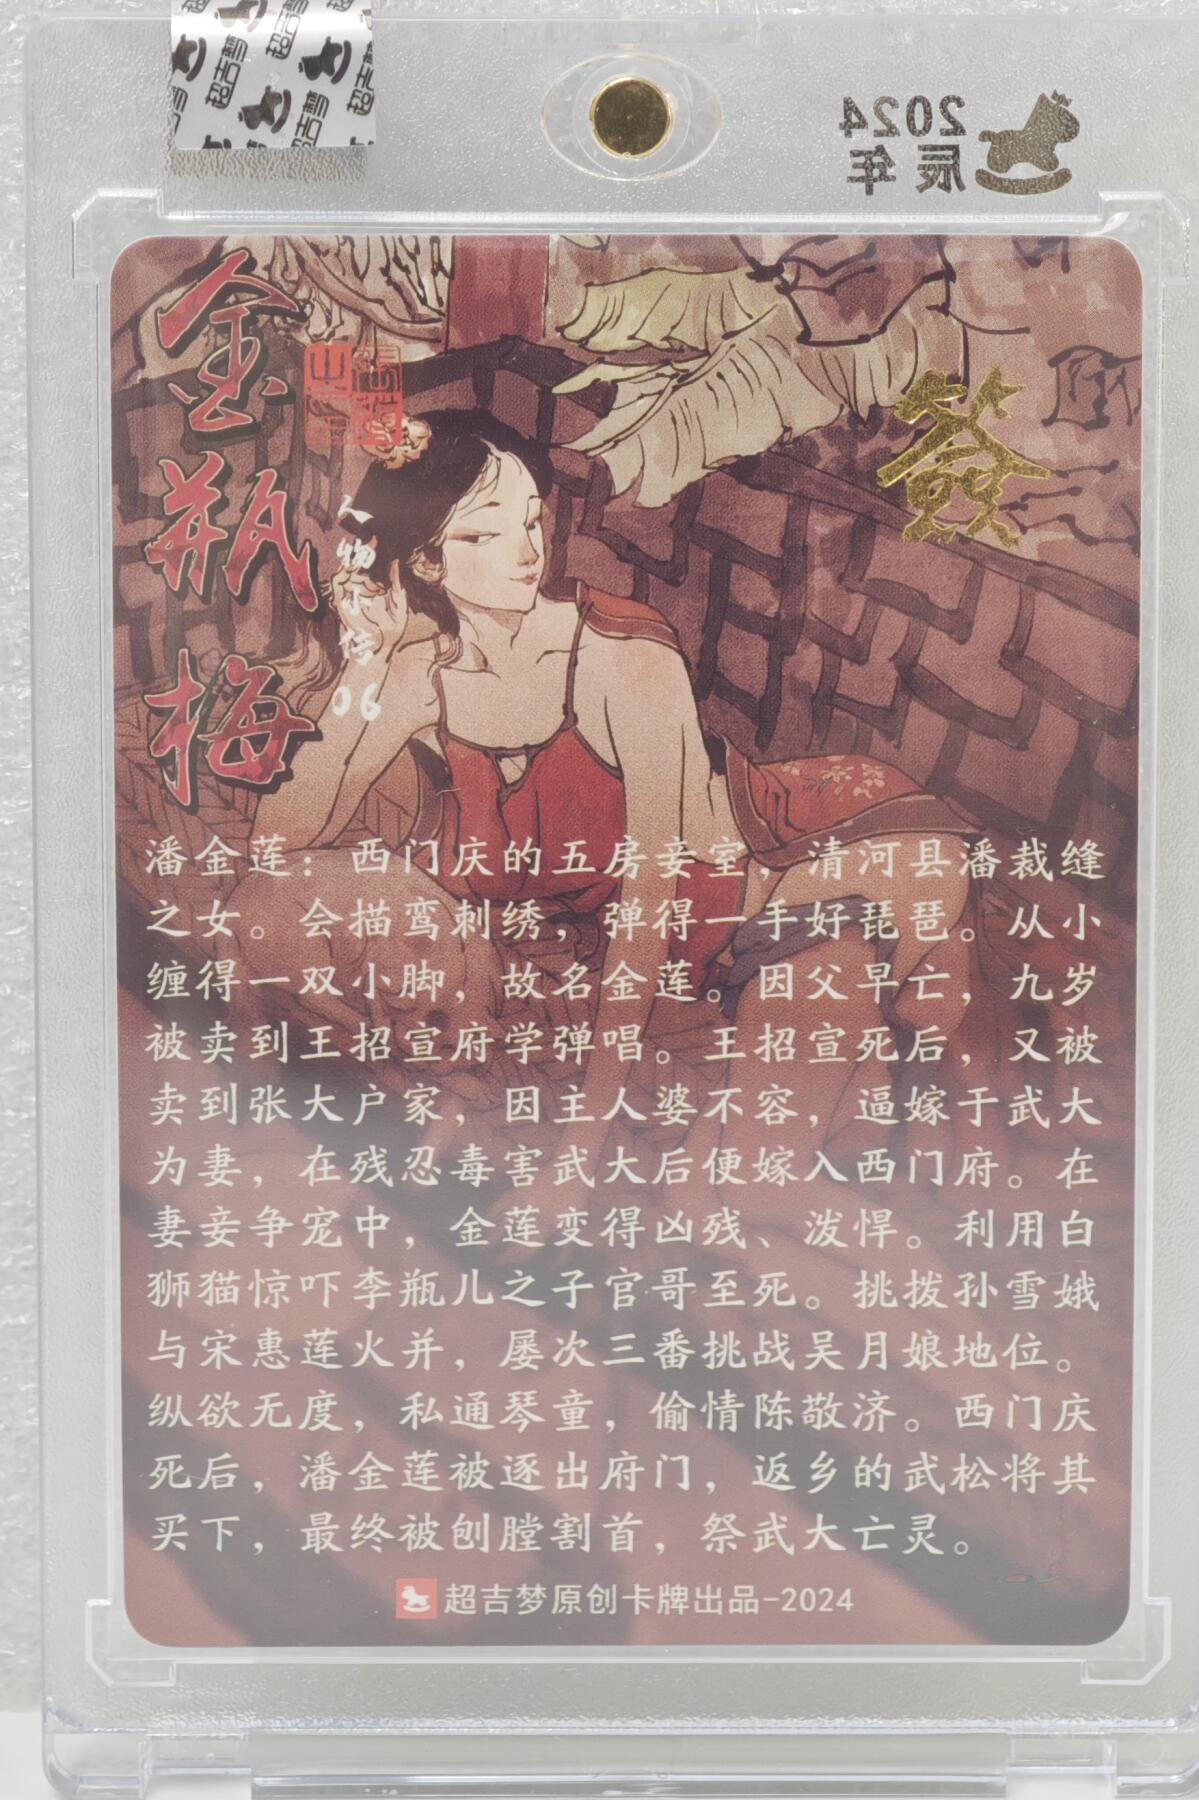 超吉梦
超吉梦
超吉梦
2024
辰年
金瓶梅
人物小传
06
簽
潘金莲：西门庆的五房妾室，清河县潘裁缝
之女。会描鸾刺绣，弹得一手好琵琶。从小
缠得一双小脚，故名金莲。因父早亡，九岁
被卖到王招宣府学弹唱。王招宣死后，又被
卖到张大户家，因主人婆不容，逼嫁于武大
为妻，在残忍毒害武大后便嫁入西门府。在
妻妾争宠中，金莲变得凶残、泼悍。利用白
狮猫惊吓李瓶儿之子官哥至死。挑拨孙雪娥
与宋惠莲火并，屡次三番挑战吴月娘地位。
纵欲无度，私通琴童，偷情陈敬济。西门庆
死后，潘金莲被逐出府门，返乡的武松将其
买下，最终被刨膛割首，祭武大亡灵。
超吉梦原创卡牌出品-2024